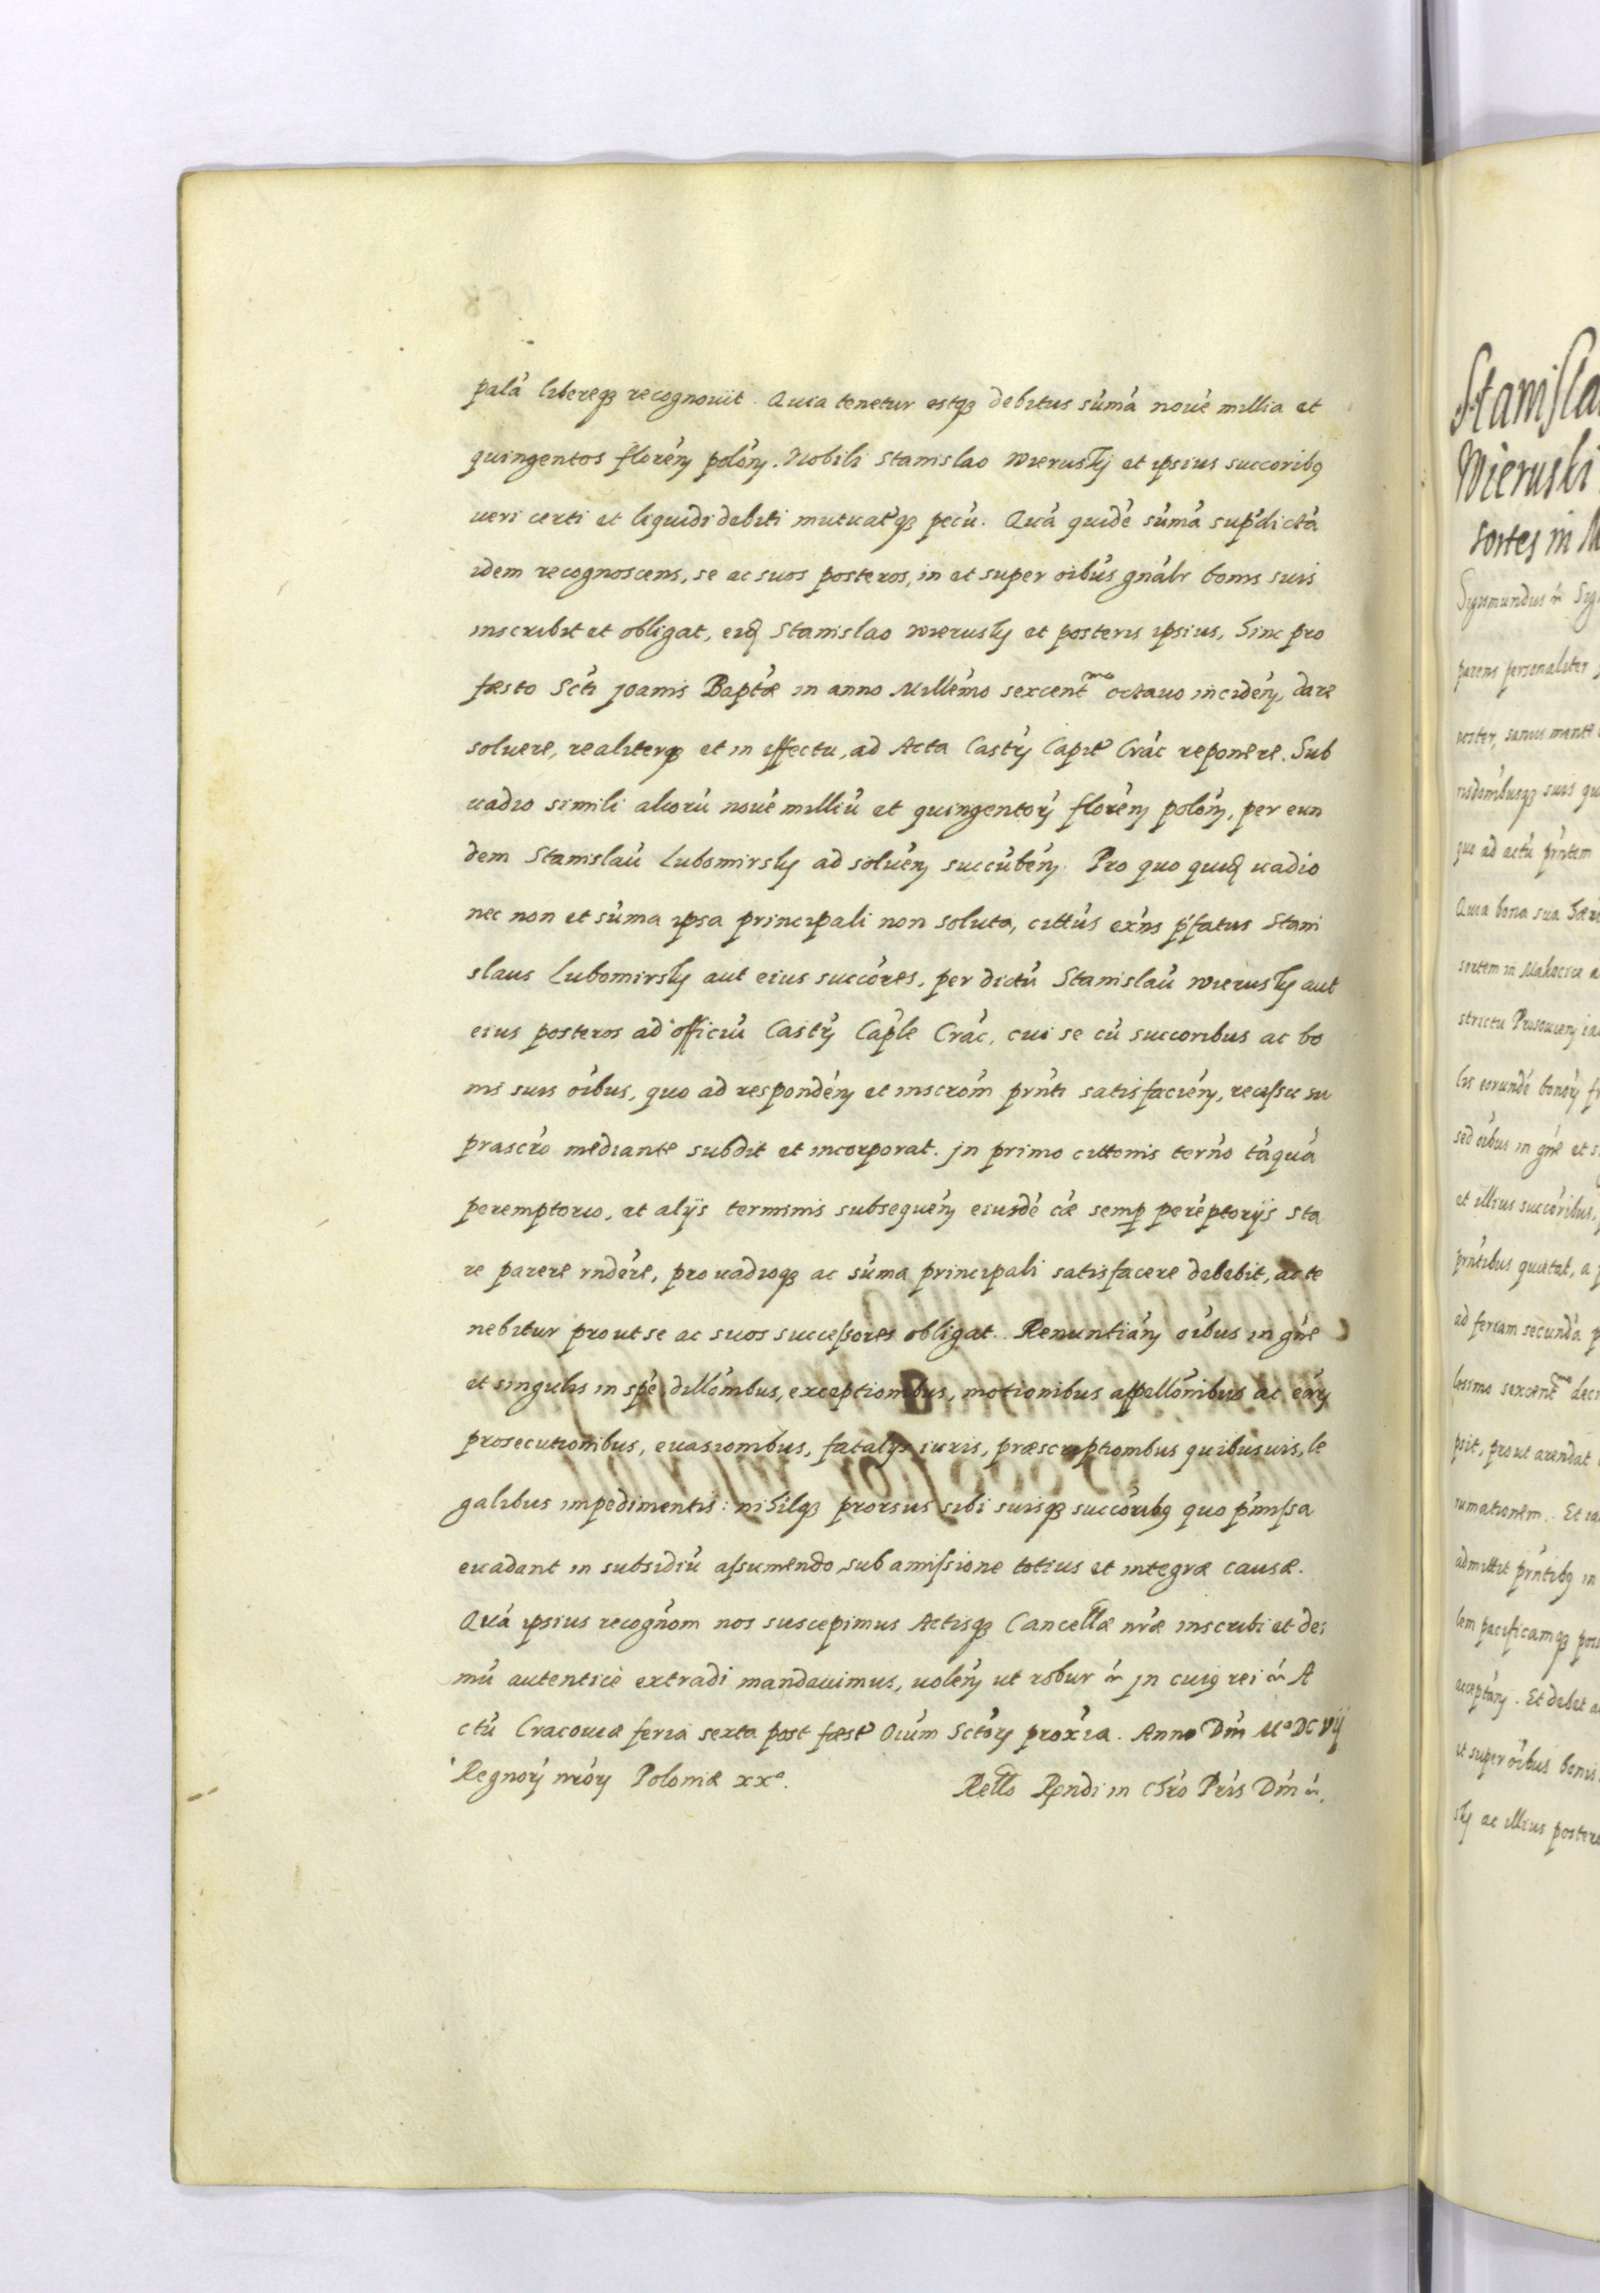 palā libereqȝ recognouit. Quia tenetur estqȝ debitus sūmā nouē millia et
quingentos florēn polōn. Nobili Stanislao Wierusky et ipsius succoribȝ
ueri certi et liquidi debiti mutuatqȝ pecū. Quā quidē sūmā supdictā
idem recognoscens, se ac suos posteros, in et super oībus gnālr bonis suis
inscribit et obligat, eidē Stanislao Wierusky et posteris ipsius, hinc pro
fæsto Scti Joanis Baptæ in anno Millēmo sexcentmo octauo incidēn, dare
soluere, realiterqȝ et in effectu, ad Acta Castry Capit Crāc reponere. Sub
uadio simili aliorū nouē milliū et quingentory florēn polōn, per eun
dem Stanislaū Lubomirsky ad soluēn succūbēn. Pro quo quidē uadio
nec non et sūma ipsa principali non soluta, cittūs exns pfatus Stani
slaus Lubomirsky aut eius succōres, per dictū Stanislaū Wierusky aut
eius posteros ad officiū Castry Caple Crāc, cui se cū succoribus ac bo
nis suis oībus, quo ad respondēn et inscrōm prnti satisfaciēn, recessu su
prascrō mediante subdit et incorporat. Jn primo cittonis ternō tāquā
peremptorio, et alijs terminis subsequēn eiusdē cæ semp perēptorijs sta
re parere rndēre, pro uadioqȝ ac sūma principali satisfacere debebit, ac te
nebitur prout se ac suos successores obligat. Renuntiān oībus in gne
et singulis in spe, dillōnibus, exceptionibus, motionibus appellōnibus ac eāry
prosecutionibus, euasionibus, fatalijs iuris, præscriptionibus quibusuis, le
galibus impedimentis: nihilqȝ prorsus sibi suisqȝ succōribȝ quo pmissa
euadant in subsidiū assumendo, sub amissione totius et integræ causæ.
Quā ipsius recognōm nos suscepimus Actisqȝ Cancellæ nræ inscribi et dei
mū autenticè extradi mandauimus, uolēn ut robur &c. Jn cuiȝ rei &c. A
ctū Cracouiæ feria sexta post fæst Oiūm Sctōry proxia. Anno Dni Mo DC vij
Regnory nrōry Poloniæ xxo.
Rello Rndi in Chro Pris Dni &c.
Stanisla
Wieruski
sortes in M
Sigismundus &c. Sig
parens personaliter
noster, sanus mente
nsdōmibusqȝ suis qu
quo ad actū prntem
Quia bona sua hær
sortem in Makocice a
lis eorundē bonory
sed oībus in gne et s
et illius succōribus,
prntibus quietat, a
ad feriam secundā p
lesimo sexcentmo dec
psit, prout arendat
sumationem. Et ia
admittit prntibȝ in
lem pacificamqȝ pos
acceptāry. Et debet a
et super oībus bonis
sky ac illius postero